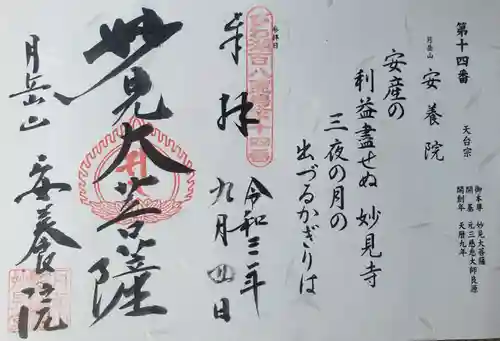 第十四番
月岳山 安養院
天台宗
御本尊 妙見大菩薩
開基 元三慈恵大師良源
開創年 天暦九年
安産の
利益盡せぬ 妙見寺
三夜の月の
出づるかぎりは
参拝日
びわ湖百八霊場第十四番
奉拝
令和三年
九月四日
妙見大菩薩
月岳山 安養院